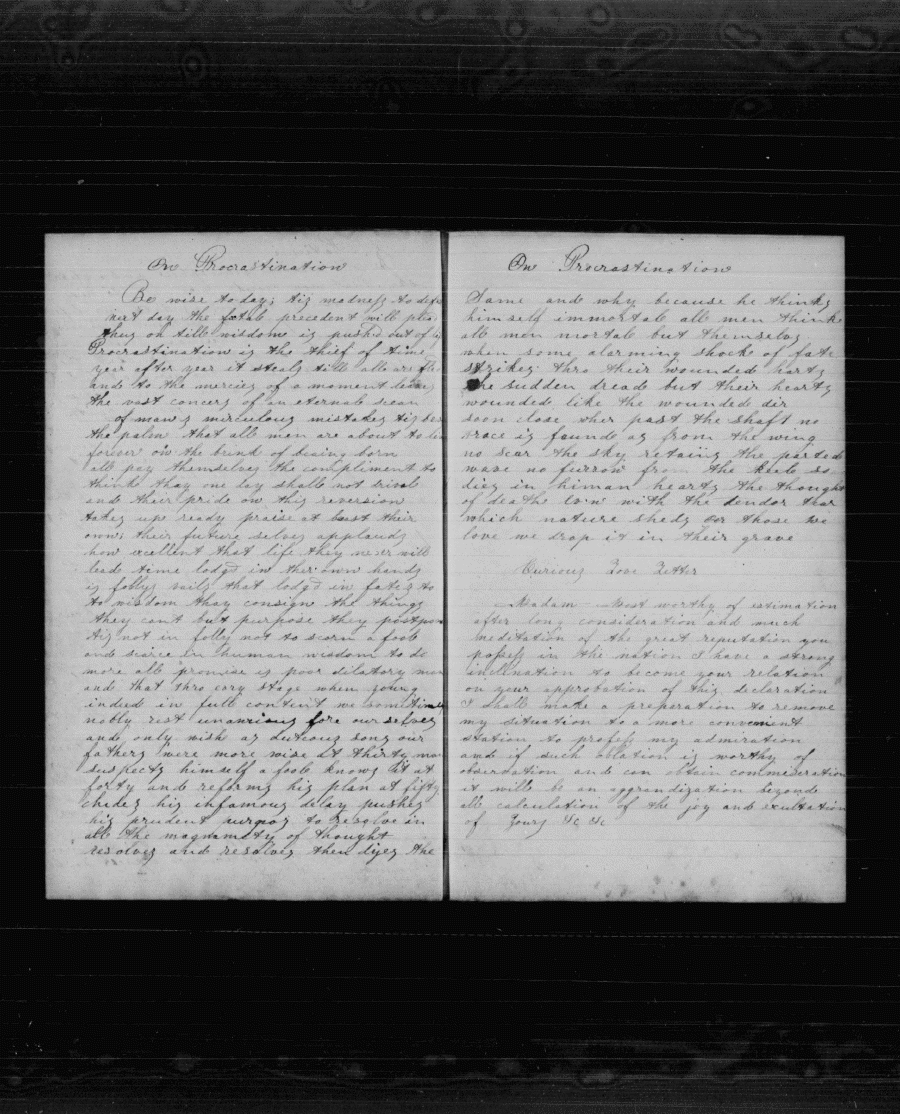 On Procrastination
Be wise today; tiz madness to defe
next day the fatal precedent will plea
they on till wisdom iz pushd out of
Procrastination is the thief of time
year after year it steals till all are fle
and to the mercies of a moment leaves
the vast concerz of an eternal scean
of mans miruculous mistakes tiz bes
the palm that all men are about to liv
forever on the brink of being born
all pay themselves the compliment to
think thay one day shall not drivel
and their pride on this reversion
takes up ready praise at least their
own; their future selves applauds
how excellent that life they never will
lead time lodgd in ther own hands
is follys vails that lodgd in fates to
to wisdom thay consign the things
they can't but purpose they postpon
tiz not in folly not to scorn a fool
and scirce in human wisdom to do
more all promise is poor dilatory man
and that thro evry stage when young
indeed in full content we sometimes
nobly rest unanxious fore ourselves
and only wish az dutious sons our
fathers were more wise at thirty man
suspects himself a fool knows it at
forty and reforms his plan at fifty
chides hiz infamous delay pushes
hiz prudent purpoz to resolve in
all the magnamity of thought
resolves and resolves then dyes the
On Procrastination
Same and why because he thinks
himself immortal all men think
all men mortal but themselvs
when some alarming shock of fate
strikes thro their wounded harts
the sudden dread but their hearts
wounded like the wounded air
soon close wher past the shaft no
trace iz found az from the wing
no scar the sky retains the parted
wave no furrow from the keele so
dies in himan hearts the thought
of deathe Ev'n with the tendor tear
which nature sheds or those we
love we drop it in their grave
Curious Love Letter
Madam Most worthy of estimation
after long consideration and much
meditation of the great reputation you
possess in the nation I have a strong
inclination to become your relation
on your approbation of this declaration
I shall make a preperation to remove
my situation to a more convenient
station to profess my admiration
and if such oblation is worthy of
observation and can obtain commiseration
it will be an aggrandization beyond
all calculation of the joy and exultation
of Yours &c &c